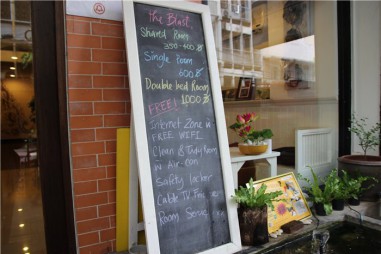 The Blast,
Shared Room
350-400 ฿
Single Room
600 ฿
Double bed Room
1,000 ฿
FREE!
Internet Zone &
FREE WIFI
Clean & Tidy Room
w Air-con
Safety locker
Cable TV,
Room